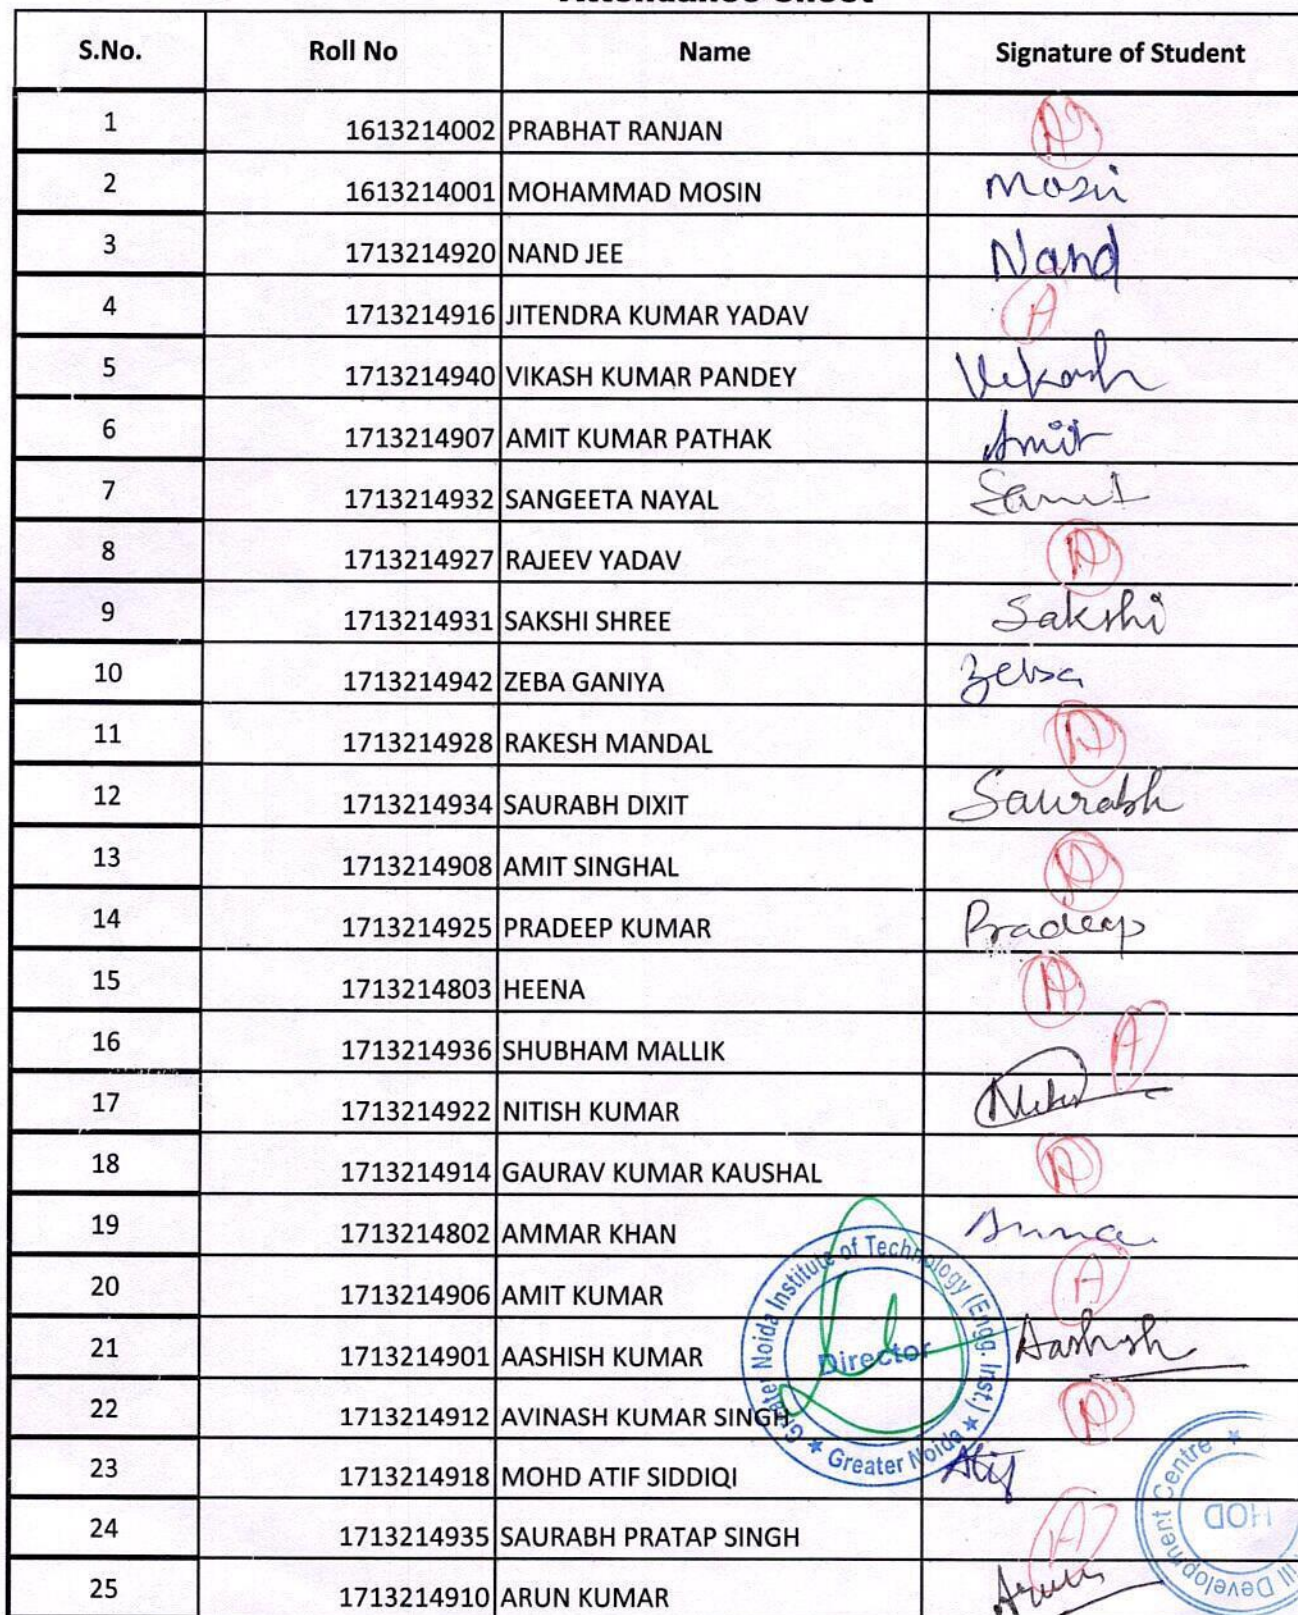 Attendance Sheet
S.No. Roll No Name Signature of Student
1 1613214002 PRABHAT RANJAN A
2 1613214001 MOHAMMAD MOSIN Mosin
3 1713214920 NAND JEE Nand
4 1713214916 JITENDRA KUMAR YADAV A
5 1713214940 VIKASH KUMAR PANDEY Vikash
6 1713214907 AMIT KUMAR PATHAK Amit
7 1713214932 SANGEETA NAYAL
8 1713214927 RAJEEV YADAV A
9 1713214931 SAKSHI SHREE Sakshi
10 1713214942 ZEBA GANIYA Zeba
11 1713214928 RAKESH MANDAL A
12 1713214934 SAURABH DIXIT Saurabh
13 1713214908 AMIT SINGHAL A
14 1713214925 PRADEEP KUMAR Pradeep
15 1713214803 HEENA A
16 1713214936 SHUBHAM MALLIK A
17 1713214922 NITISH KUMAR
18 1713214914 GAURAV KUMAR KAUSHAL A
19 1713214802 AMMAR KHAN
20 1713214906 AMIT KUMAR A
21 1713214901 AASHISH KUMAR Aashish
22 1713214912 AVINASH KUMAR SINGH A
23 1713214918 MOHD ATIF SIDDIQI Atif
24 1713214935 SAURABH PRATAP SINGH A
25 1713214910 ARUN KUMAR Arun
Greater Noida Institute of Technology (Engg. Inst.)
Director
★ Greater Noida ★
Development Centre ★
HOD